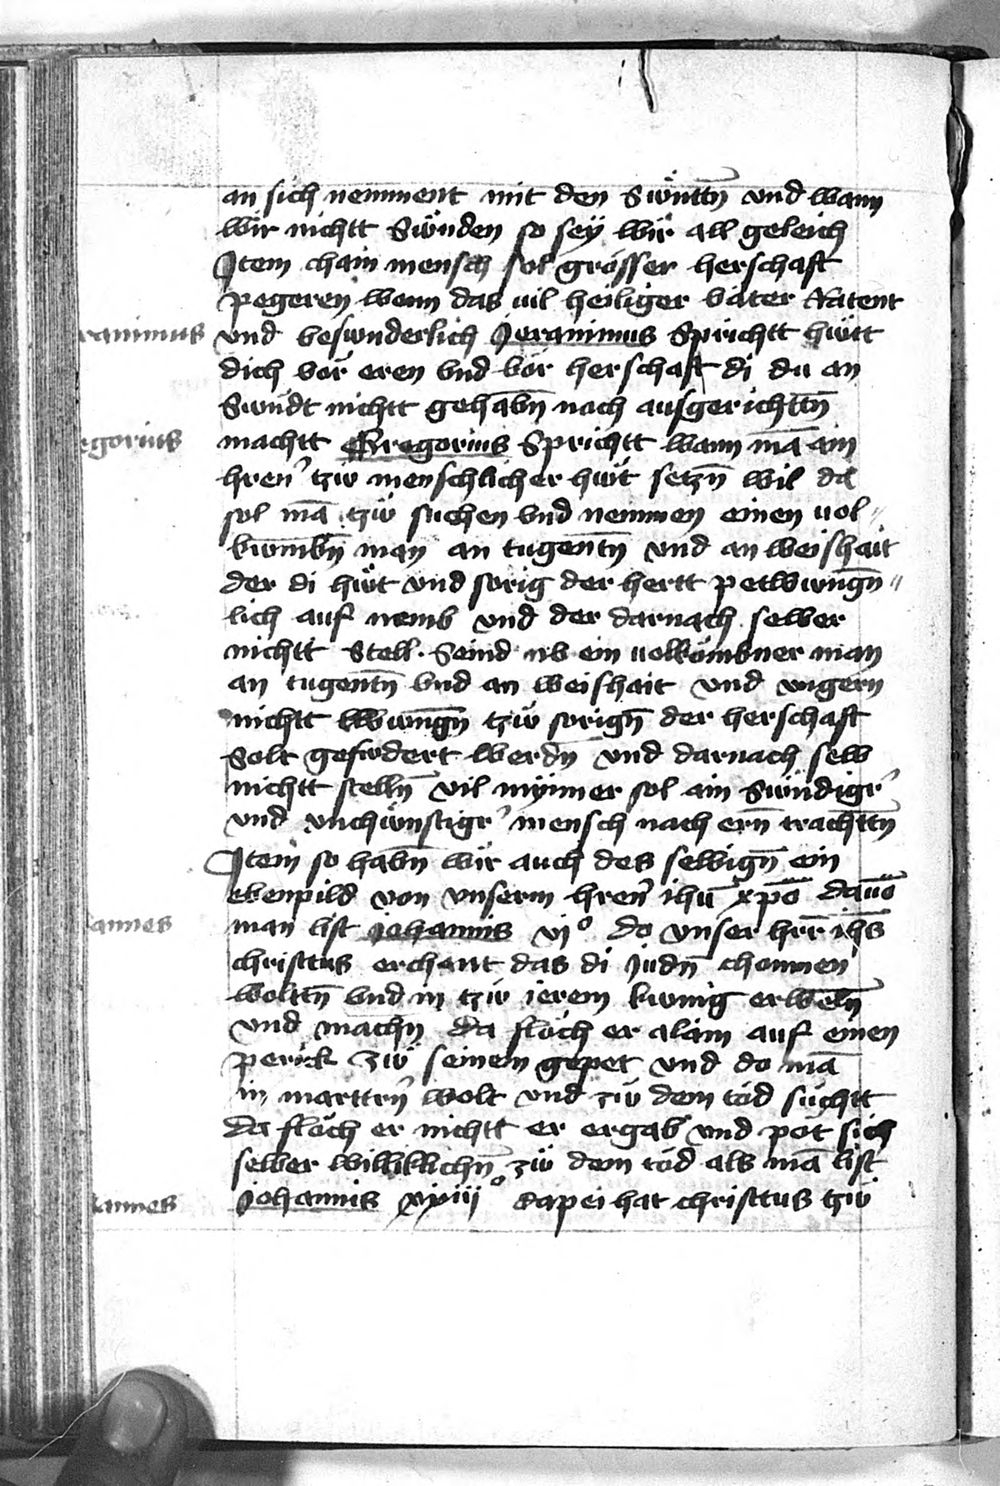 an sich nemment mit den Swnttn̄ vnd wann
wir nichtt Swnden so sey wir all geleich
Item chain mensch sol grosser herschaft
pegeren wenn das uil heiliger väter Ratent
ranimus und besunderlich Jeranimus Sprichtt hütt
dich vör eren vnd vör herschaft di du an
Swndt nichtt gehabn̄ noch ausgerichttn̄
egorius machtt Gregorius Sprichtt wann mā ain
hren tzw menschlicher hüt setzn̄ wil da
sol mā tzw suchen vnd nemmen einen uol„
kwmbn̄ man an tugentn̄ vnd an weishait
der di hüt vnd sorig der hertt petwungn̄„
lich auf nemb vnd der darnach selber
nichtt stell. Seind nv ein uolkömbner man
an tugentn̄ vnd an weishait vnd ungern
nichtt twungn̄ tzw sorign̄ der herschaft
Solt gefodert werdn̄ vnd darnach selb
nichtt stelln̄ vil mynner sol ain Swndigr
vnd vnchünstigr mensch nach ern̄ trachttn̄
Item so habn̄ wir auch des selbign̄ ein
ebenpild von vnserm hren ihū xpō dauō
annes man list Johannis vjº do vnser hrr̄ ihs̄
christus erchant das di Judn̄ chommen
woltn̄ vnd in tzw ierem kwnig erweln̄
vnd machn̄ da flöch er alain auf einen
perick zw seinem gepet vnd do mā
in marttrn̄ wolt vnd zw dem töd süchtt
da flöch er nichtt er ergab vnd pöt sich
selber willikllichn̄ zw dem töd als mā list
annes Johannis xviijº dapei hat christtus tzw